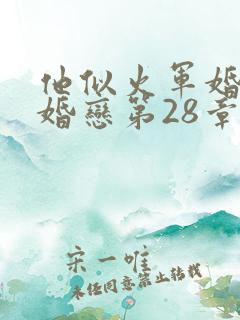 他似火军婚
婚戀第28章
宋一唯
未经同意禁止转载